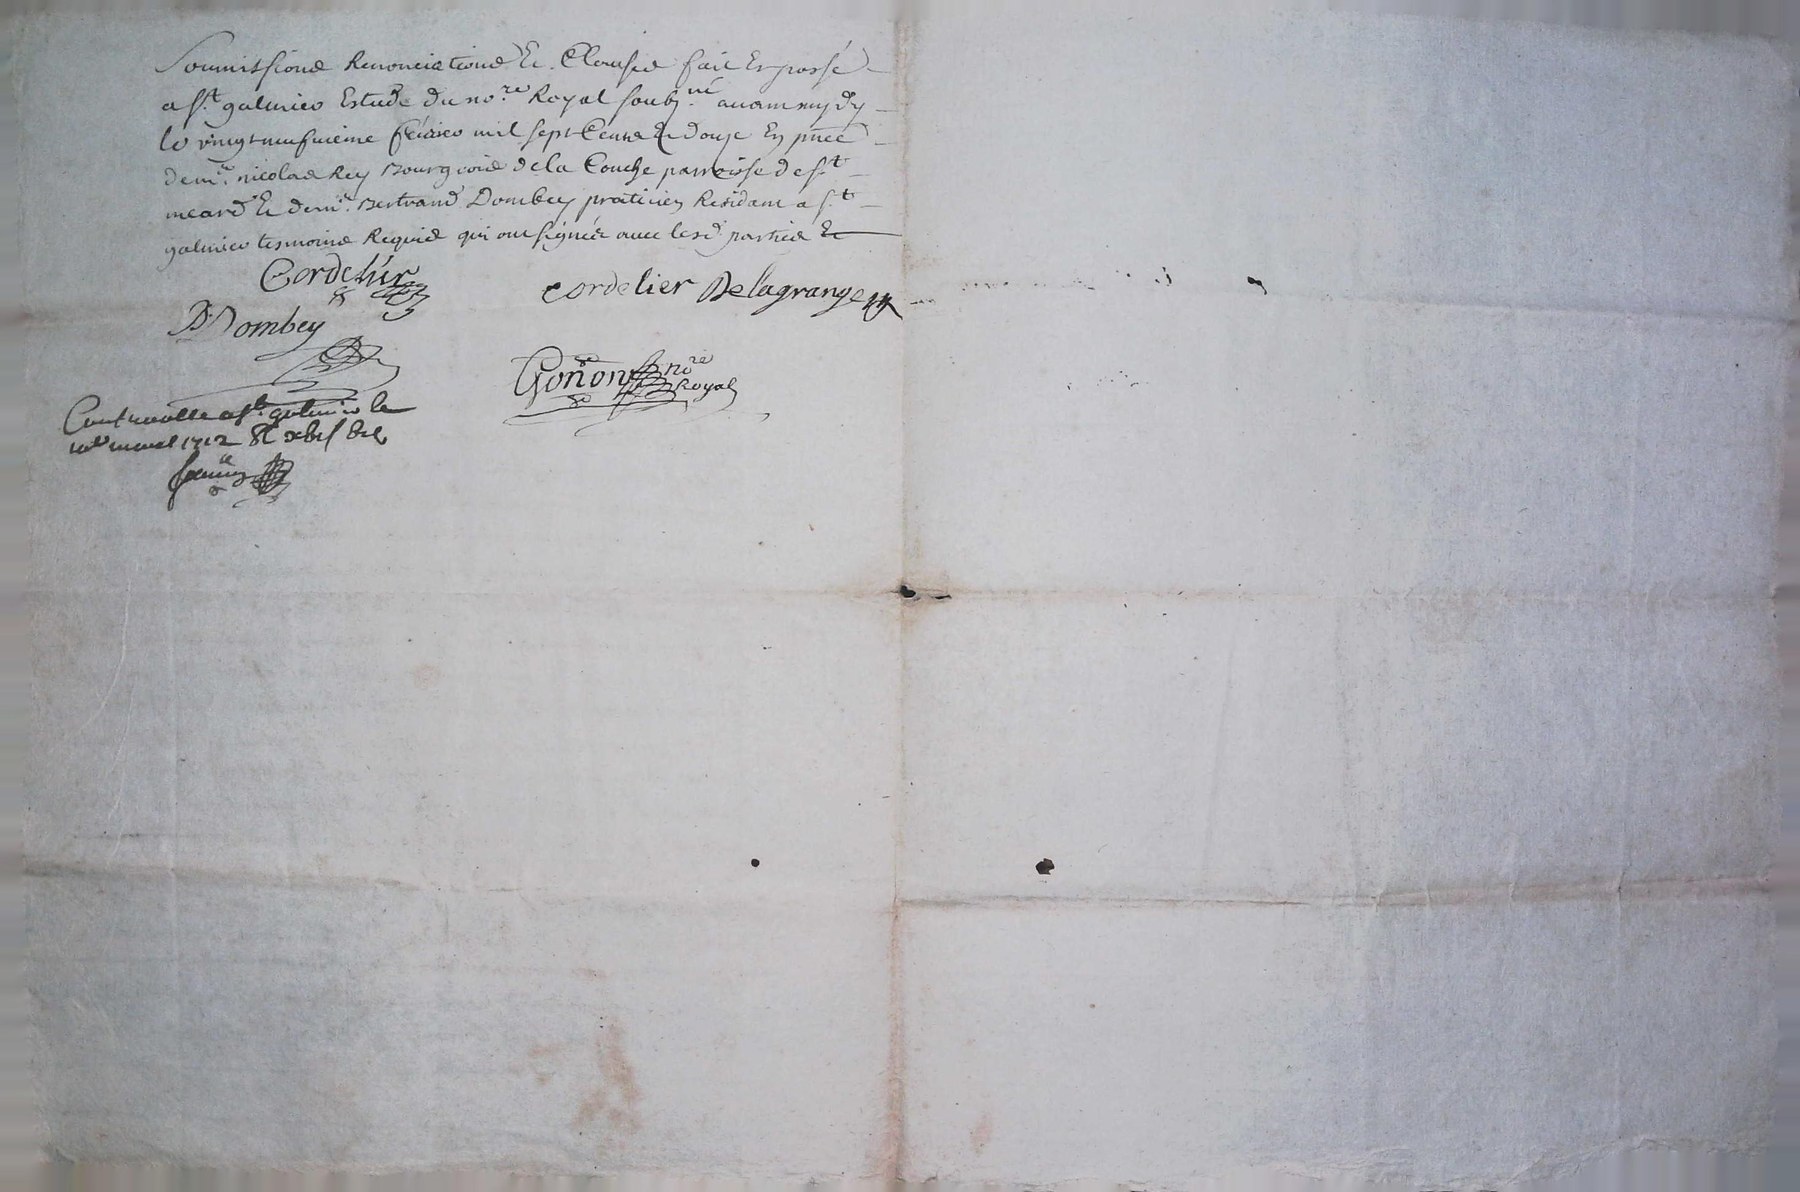 Soumissions Renonciations Et Clauses fait Et passé
a St galmier Estude du no.re Royal soubz.né avant mydy
le vingt neufvieme febvrier mil sept Cents Et douze En pnce
de mr. nicolas Rey Bourgeois de la Couche parroisse de St
meard Et de mr. Bertrand Dombey praticien Residant a St
galmier tesmoins Requis qui ont signés avec lesd parties Et
Cordelier
cordelier Delagrange
B Dombey
Goñon no.re
Royal
Controolle a St. galmier le
mars 1712